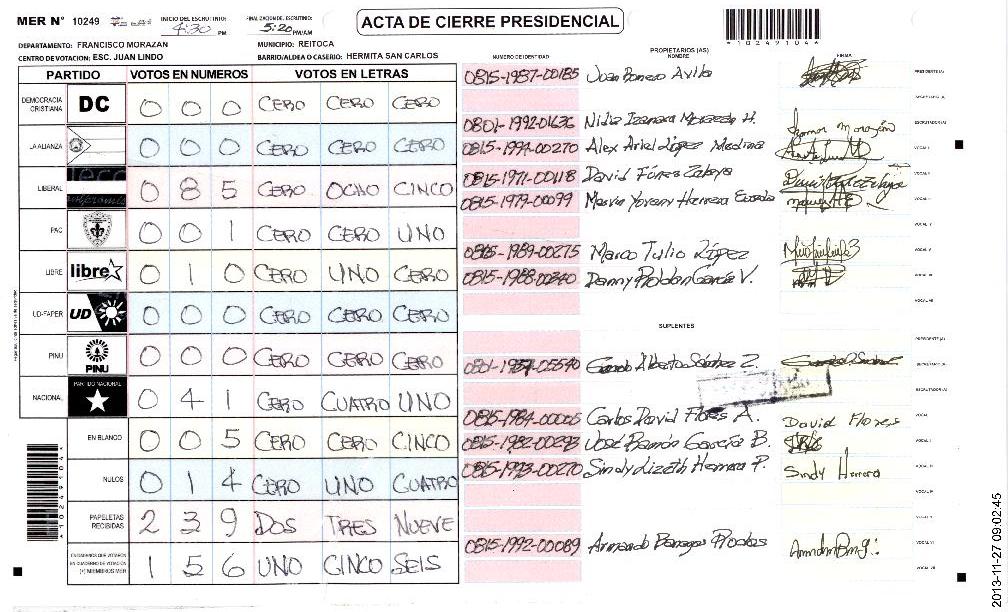 MER Nº 10249
INICIO DEL ESCRUTINIO: 4:30 PM
FINALIZACION DEL ESCRUTINIO: 5:20 PM/AM
ACTA DE CIERRE PRESIDENCIAL
*10249104*
DEPARTAMENTO: FRANCISCO MORAZAN
MUNICIPIO: REITOCA
CENTRO DE VOTACION: ESC. JUAN LINDO
BARRIO/ALDEA O CASERIO: HERMITA SAN CARLOS
PARTIDO VOTOS EN NUMEROS VOTOS EN LETRAS
DEMOCRACIA CRISTIANA DC 0 0 0 CERO CERO CERO
LA ALIANZA 0 0 0 CERO CERO CERO
LIBERAL 0 8 5 CERO OCHO CINCO
PAC 0 0 1 CERO CERO UNO
LIBRE libre 0 1 0 CERO UNO CERO
UD-FAPER UD 0 0 0 CERO CERO CERO
PINU PINU 0 0 0 CERO CERO CERO
NACIONAL PARTIDO NACIONAL 0 4 1 CERO CUATRO UNO
EN BLANCO 0 0 5 CERO CERO CINCO
NULOS 0 1 4 CERO UNO CUATRO
PAPELETAS RECIBIDAS 2 3 9 DOS TRES NUEVE
CIUDADANOS QUE VOTARON EN CUADERNO DE VOTACION (+) MIEMBROS MER 1 5 6 UNO CINCO SEIS
*10249104*
NUMERO DE IDENTIDAD
PROPIETARIOS (AS)
NOMBRE
FIRMA
0815-1987-00185 Juan Avila PRESIDENTE(A)
SECRETARIO(A)
0801-1992-01636 Nidia H. ESCRUTADOR(A)
0815-1994-00270 Alex Ariel López Medina VOCAL I
0815-1971-00118 David Fúnez Zelaya VOCAL II
0815-1979-00099 Yovany Herrera VOCAL
VOCAL
0805-1989-00275 Marco Tulio López VOCAL V
0815-1988-00240 Danny Roldan García V. VOCAL
VOCAL
SUPLENTES
PRESIDENTE(A)
Alberto Sánchez Z. SECRETARIO(A)
ESCRUTADOR(A)
0815-1984-00005 Carlos David Flores A. David Flores VOCAL
0815-1982-00293 José Ramón García B. VOCAL
0815-1993-00270 Sindy Lizeth Herrera P. Sindy Herrera VOCAL
VOCAL
VOCAL
0815-1992-00089 Armando VOCAL
VOCAL
2013-11-27 09:02:45